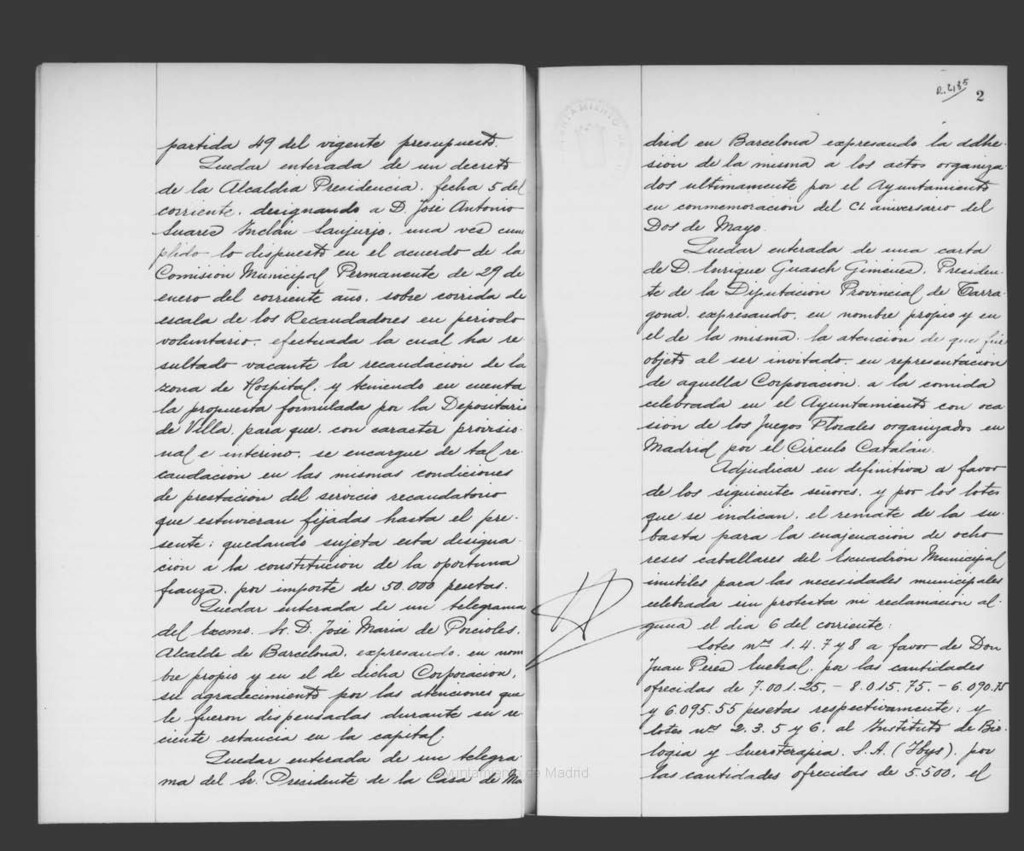 partida 49 del vigente presupuesto.
Quedar enterada de un decreto
de la Alcaldia Presidencia, fecha 5 del
corriente, designando a D. José Antonio
Suarez Inclán Sanjurjo, una vez cum
plido lo dispuesto en el acuerdo de la
Comisión Municipal Permanente de 29 de
enero del corriente año, sobre corrida de
escala de los Recaudadores en periodo
voluntario, efectuada la cual ha re
sultado vacante la recaudación de la
zona de Hospital, y teniendo en cuenta
la propuesta formulada por la Depositaria
de Villa, para que, con caracter provisio
nal e interino, se encargue de tal re
caudación en las mismas condiciones
de prestación del servicio recaudatorio
que estuvieran fijadas hasta el pre-
sente; quedando sujeta esta designa-
ción a la constitución de la oportuna
fianza, por importe de 50.000 pesetas.
Quedar enterada de un telegrama
del Excmo. Sr. D. José Maria de Porcioles,
Alcalde de Barcelona, expresando, en nom
bre propio y en el de dicha Corporación,
su agradecimiento por las atenciones que
le fueron dispensadas durante su re
ciente estancia en la capital.
Quedar enterada de un telegra-
ma del Sr. Presidente de la Casa de Ma
2
drid en Barcelona expresando la adhe-
sión de la misma a los actos organiza
dos ultimamente por el Ayuntamiento
en conmemoración del CL aniversario del
Dos de Mayo.
Quedar enterada de una carta
de D. Enrique Guasch Giménez, Presiden-
te de la Diputación Provincial de Tarra-
gona, expresando, en nombre propio y en
el de la misma, la atención de que fué
objeto al ser invitado, en representación
de aquella Corporación, a la comida
celebrada en el Ayuntamiento con oca
sión de los Juegos Florales organizados en
Madrid por el Circulo Catalán.
Adjudicar en definitiva a favor
de los siguientes señores, y por los lotes
que se indican, el remate de la su-
basta para la enajenación de ocho
reses caballares del Escuadrón Municipal
inutiles para las necesidades municipales
celebrada sin protesta ni reclamación al-
guna el dia 6 del corriente:
Lotes nos 1, 4, 7 y 8 a favor de Don
Juan Pérez, por las cantidades
ofrecidas de 7.001.25, - 8.015.75, - 6.090.75
y 6.095.55 pesetas respectivamente; y
lotes nos 2, 3, 5 y 6, al Instituto de Bio-
logia y Sueroterapia, S.A. (Ibys), por
las cantidades ofrecidas de 5.500, el
Ayuntamiento de Madrid